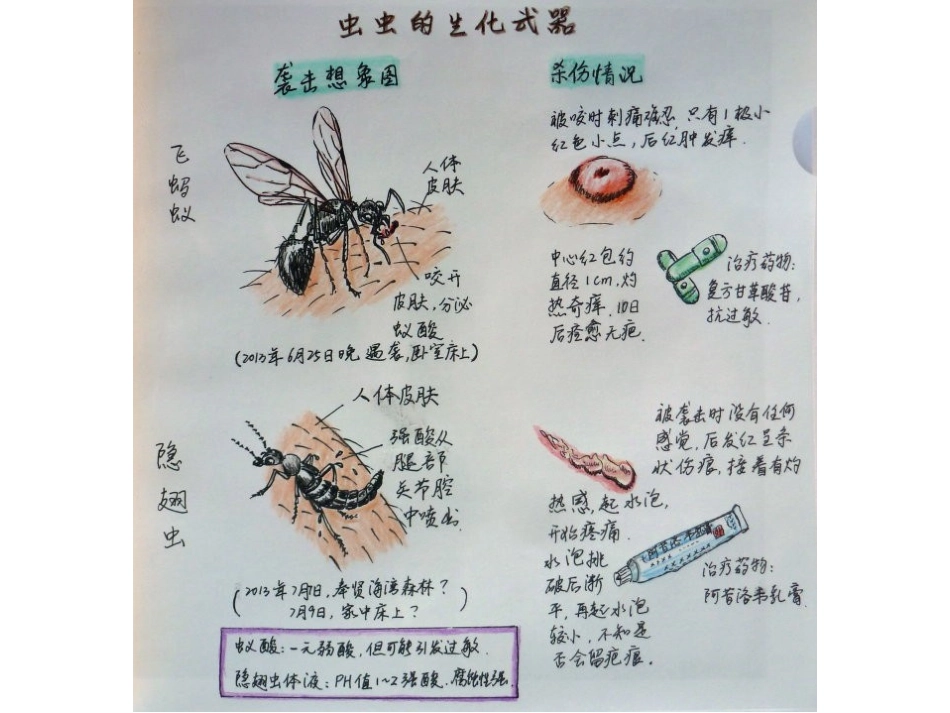 虫虫的生化武器
袭击想象图
杀伤情况
飞
蚂
蚁
人体
皮肤
咬开
皮肤,分泌
蚁酸
(2013年6月25日晚 遇袭,卧室床上)
被咬时刺痛难忍,只有1极小
红色小点,后红肿发痒.
中心红包约
直径1cm,灼
热奇痒.10日
后痊愈无疤.
治疗药物:
复方甘草酸苷,
抗过敏.
隐
翅
虫
人体皮肤
强酸从
腿部
关节腔
中喷出.
(2013年7月7日,奉贤海湾森林?
7月9日,家中床上?)
被袭击时没有任何
感觉,后发红呈条
状伤痕,接着有灼
热感,起水泡,
开始疼痛.
水泡挑
破后渐
平,再起水泡
较小,不知是
否会留疤痕.
治疗药物:
阿昔洛韦乳膏.
蚁酸:一元弱酸,但可能引发过敏.
隐翅虫体液:PH值1~2强酸.腐蚀性强.